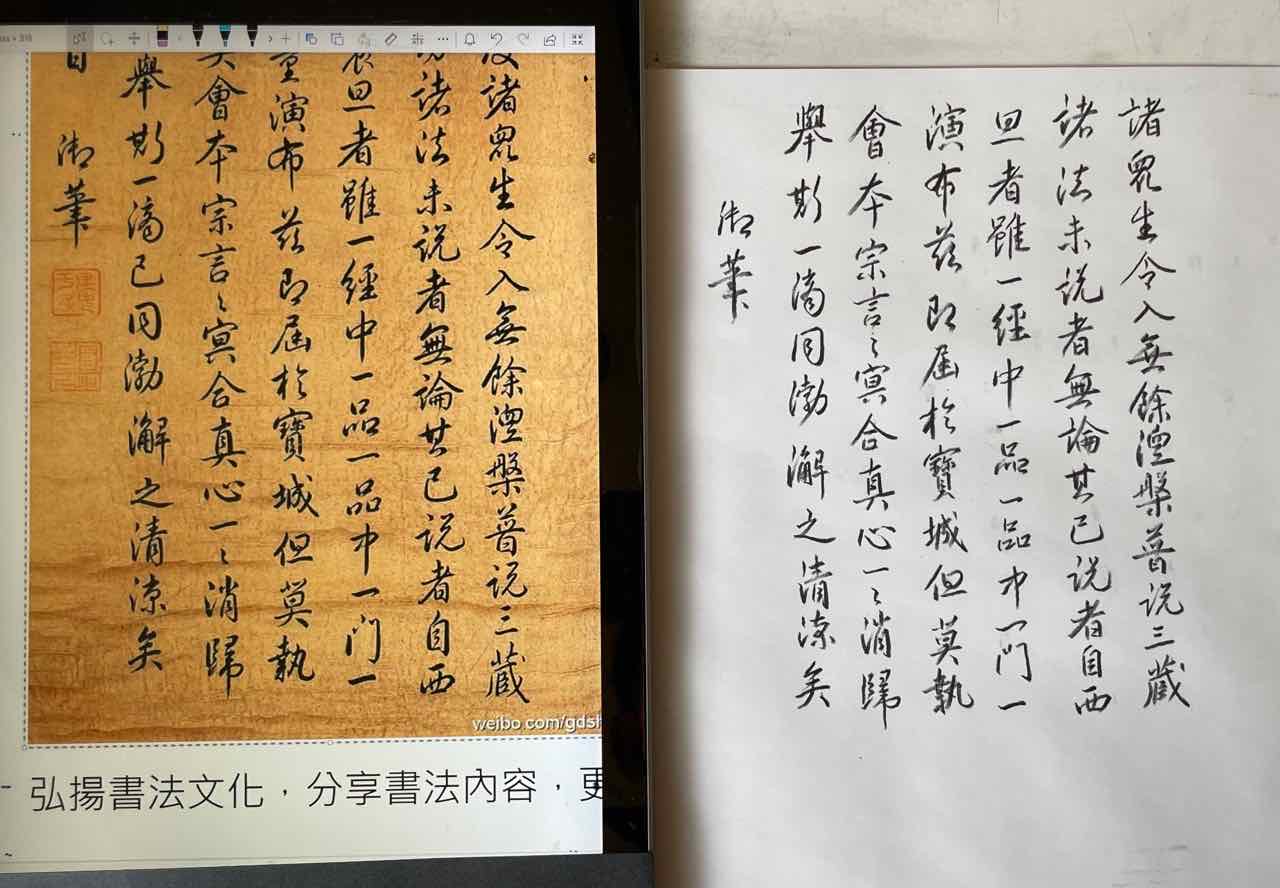 諸眾生令入無餘涅槃普说三藏
诸法未说者無論其已说者自西
旦者雖一經中一品一品中一门一
量演布茲即屆於寶城但莫執
會本宗言〻冥合真心一〻消歸
舉斯一滴已同渤澥之清涼矣
御筆
weibo.com/gdsh
弘揚書法文化，分享書法內容，更
諸眾生令入無餘涅槃普说三藏
诸法未说者無論其已说者自西
旦者雖一經中一品一品中一门一
演布茲即屆於寶城但莫執
會本宗言〻冥合真心一〻消歸
舉斯一滴同渤澥之清涼矣
御筆